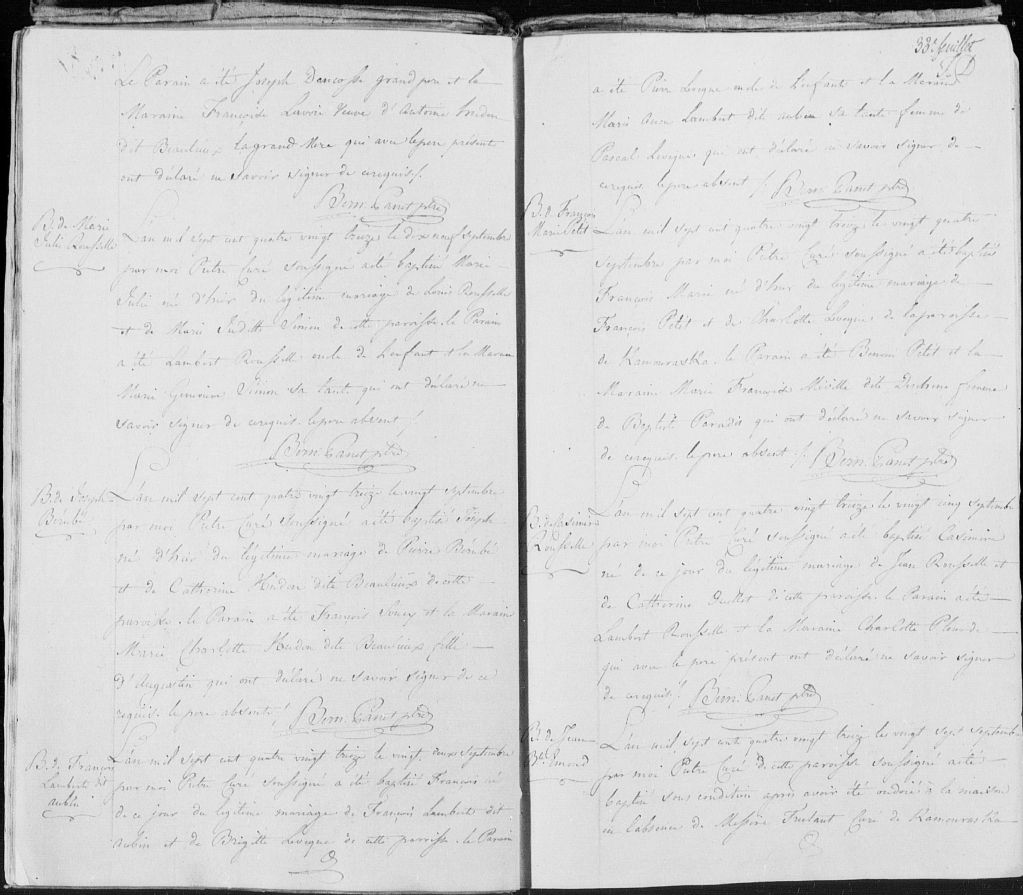 Le Parain a été Joseph Dancosse grand pere et la
Maraine Françoise Lavoie Veuve d'Antoine hudon
dit Beaulieux la grand Mere qui avec le pere présent
ont déclaré ne savoir signer de ce requis /.
Bern. Panet ptre
B. de Marie
Julie Rousselle
L'an mil sept cent quatre vingt treize le dix neuf Septembre
par moi Prêtre Curé Soussigné a été baptisé Marie
Julie né d'hier du légitime mariage de Louis Rousselle
et de Marie Judith Simon de cette paroisse. le Parain
a été Lambert Rousselle oncle de L'enfant et la Maraine
Marie Genevieve Simon sa tante qui ont déclaré ne
savoir signer de ce requis. le pere absent /
Bern. Panet ptre
B. de Joseph
Bérubé
L'an mil sept cent quatre vingt treize le vingt septembre
par moi Prêtre Curé Soussigné a été baptisé Joseph
né d'hier du légitime mariage de Pierre Bérubé
et de Catherine Hudon dite Beaulieux de cette
paroisse. le Parain a été François Soucy et la Maraine
Marie Charlotte Hudon dite Beaulieux fille
d'Augustin qui ont déclaré ne savoir signer de ce
requis. le pere absent /
Bern. Panet ptre
B. de François
Lambert dit
aubin
L'an mil sept cent quatre vingt treize le vingt deux Septembre
par moi Prêtre Curé Soussigné a été baptisé François né
de ce jour du légitime mariage de François Lambert dit
aubin et de Brigitte Levêque de cette parroisse. le Parain
33e feuillet
a été Pierre Levêque oncle de L'enfant et la Maraine
Marie Anne Lambert dite aubin sa tante femme de
Pascal Levêque qui ont déclaré ne savoir signer de
ce requis le pere absent /
Bern. Panet ptre
B. de François
Marie Petit
L'an mil sept cent quatre vingt treize le vingt quatre
Septembre par moi Prêtre Curé soussigné a été baptisé
François Marie né d'hier du légitime mariage de
François Petit et de Charlotte Levêque de la paroisse
de Kamouraska. le Parain a été Benoni Petit et la
Maraine Marie Françoise Miville dite Deschene femme
de Baptiste Paradis qui ont déclaré ne savoir signer
de ce requis. le pere absent /
Bern. Panet ptre
B. de Casimire
Rousselle
L'an mil sept cent quatre vingt treize le vingt cinq Septembre
par moi Prêtre Curé soussigné a été baptisé Casimire
né de ce jour du légitime mariage de Jean Rousselle et
de Catherine Ouellet de cette paroisse. le Parain a été
Lambert Rousselle et la Maraine Charlotte Plourde
qui avec le pere présent ont déclaré ne savoir signer
de ce requis /
Bern. Panet ptre
B. de Jean
Bte Emond
L'an mil sept cent quatre vingt treize le vingt sept septembre
par moi Prêtre Curé de cette paroisse soussigné a été
baptisé sous condition après avoir été ondoié à la maison
en l'absence de Messire Trutaut Curé de Kamouraska